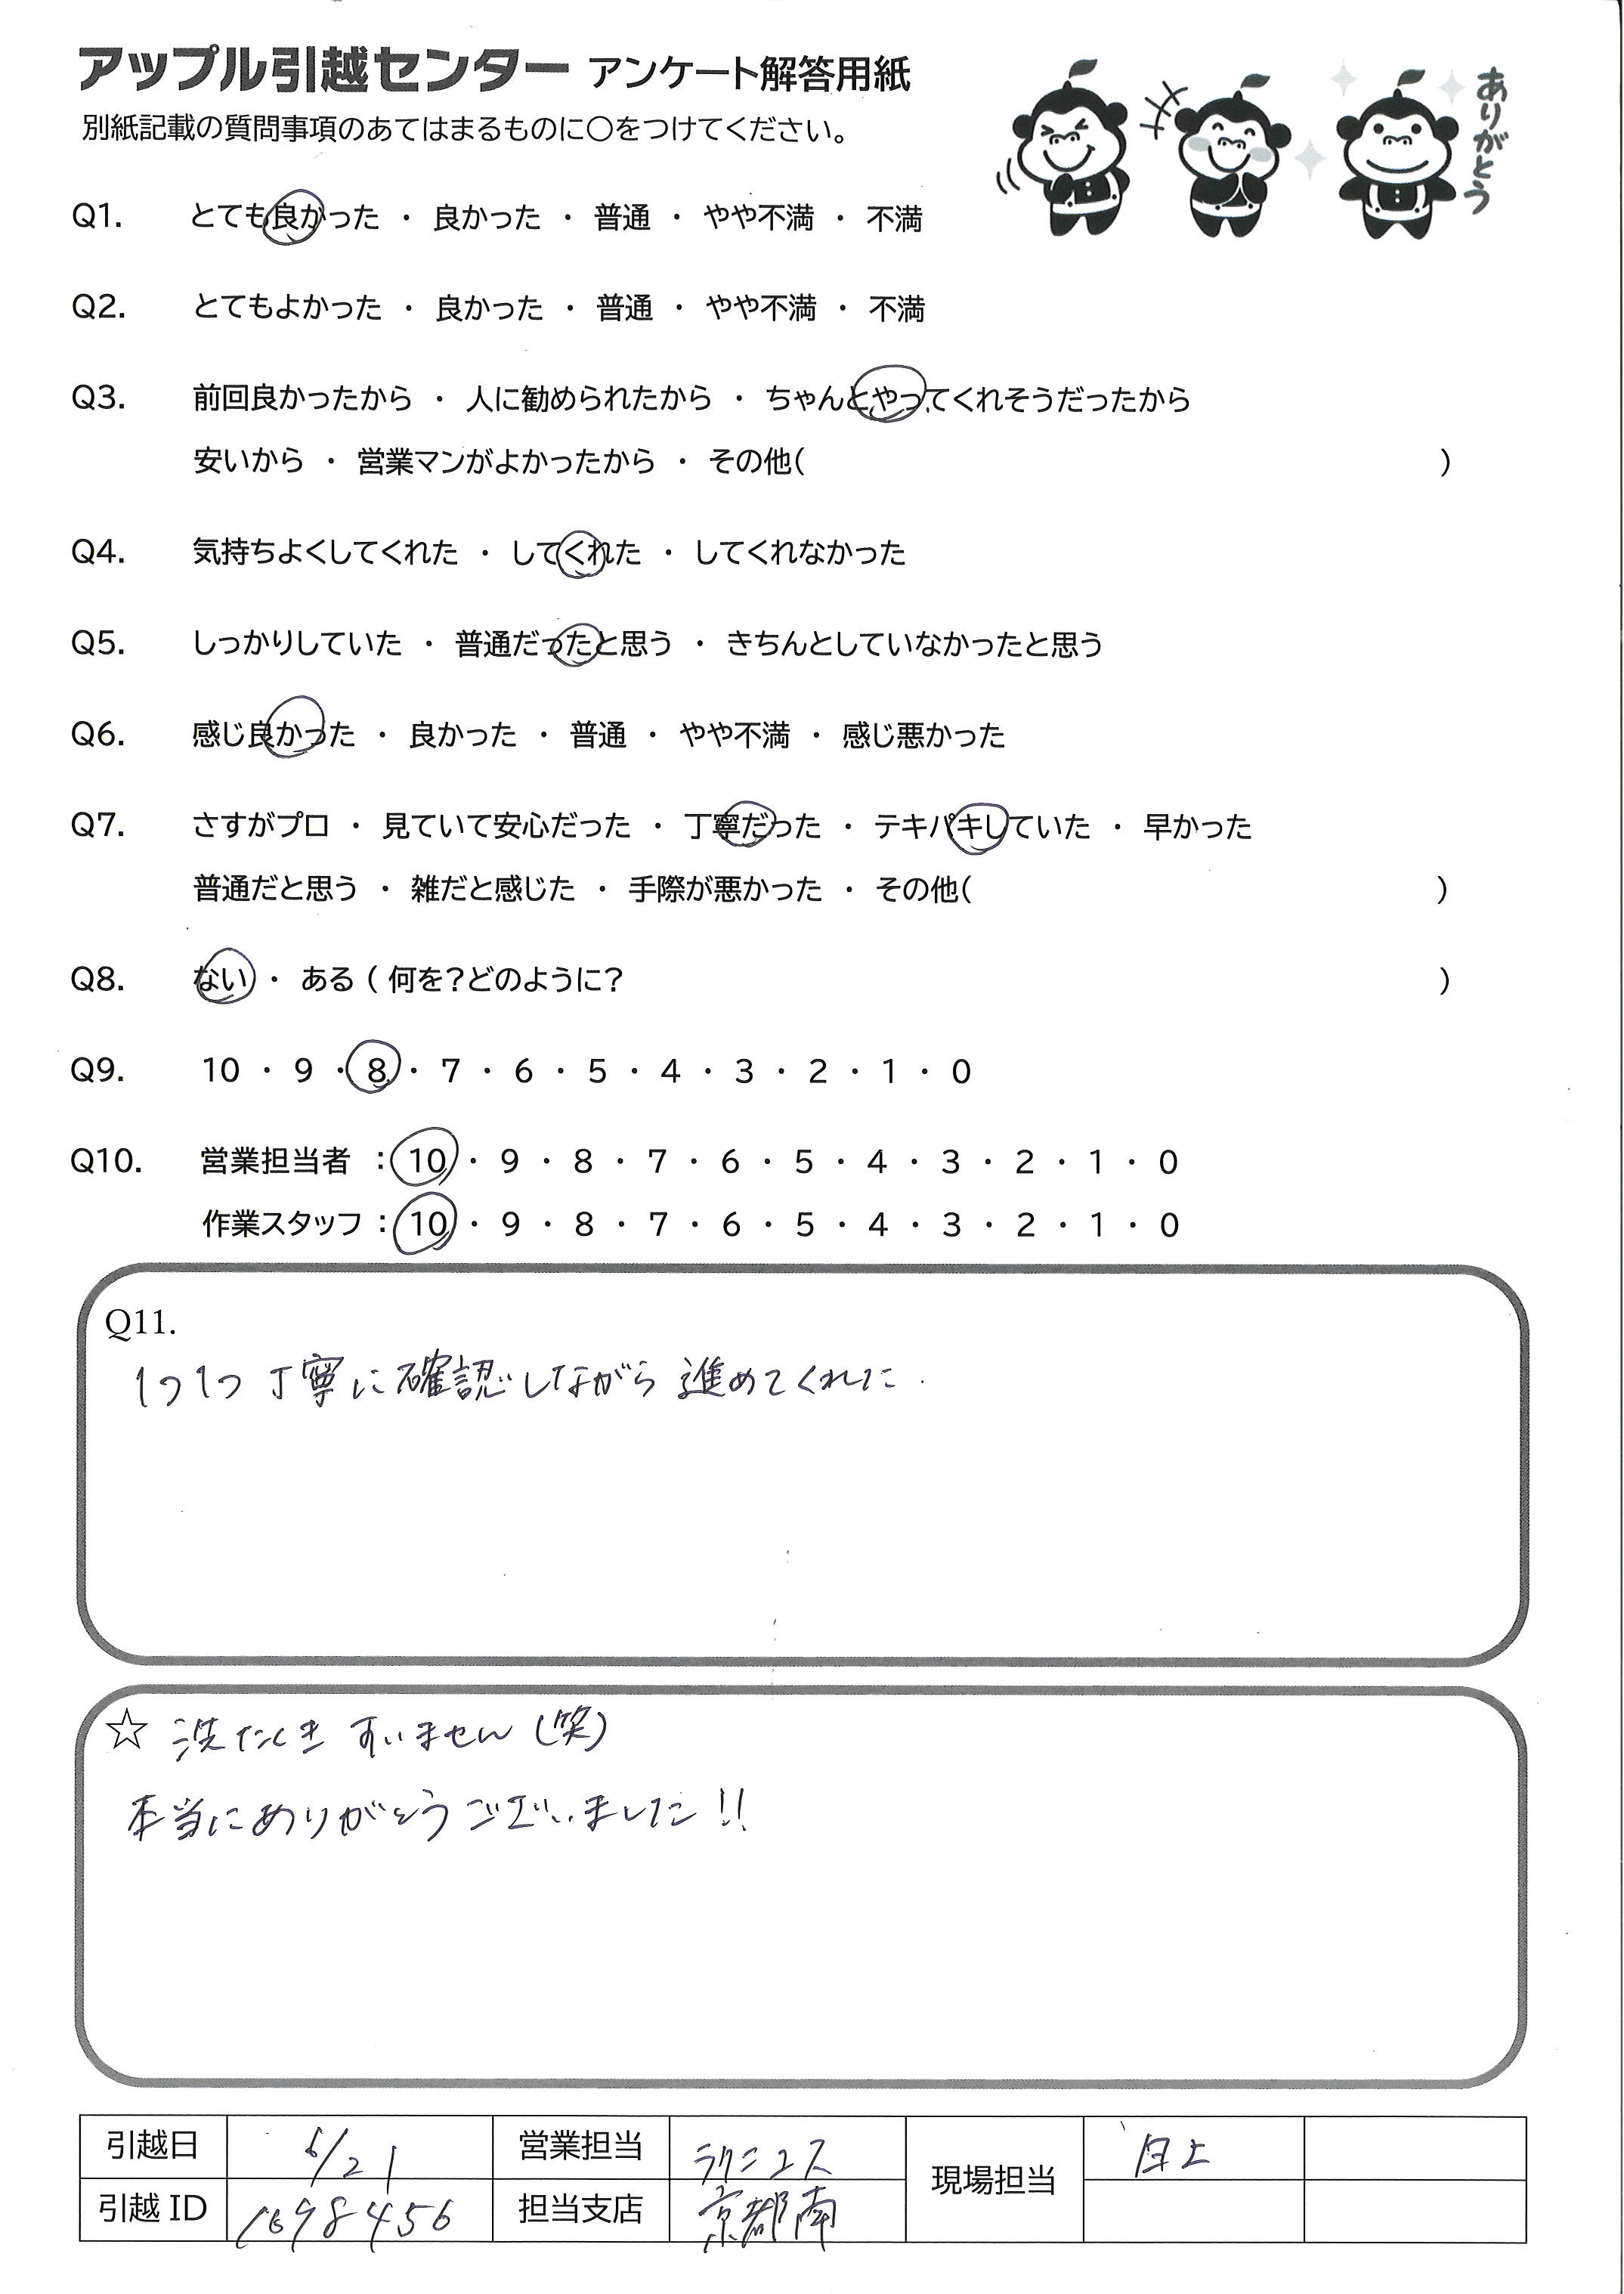 アップル引越センター アンケート解答用紙
別紙記載の質問事項のあてはまるものに○をつけてください。
ありがとう
Q1. とても良かった ・ 良かった ・ 普通 ・ やや不満 ・ 不満
Q2. とてもよかった ・ 良かった ・ 普通 ・ やや不満 ・ 不満
Q3. 前回良かったから ・ 人に勧められたから ・ ちゃんとやってくれそうだったから
安いから ・ 営業マンがよかったから ・ その他( )
Q4. 気持ちよくしてくれた ・ してくれた ・ してくれなかった
Q5. しっかりしていた ・ 普通だったと思う ・ きちんとしていなかったと思う
Q6. 感じ良かった ・ 良かった ・ 普通 ・ やや不満 ・ 感じ悪かった
Q7. さすがプロ ・ 見ていて安心だった ・ 丁寧だった ・ テキパキしていた ・ 早かった
普通だと思う ・ 雑だと感じた ・ 手際が悪かった ・ その他( )
Q8. ない ・ ある ( 何を?どのように? )
Q9. 10 ・ 9 ・ 8 ・ 7 ・ 6 ・ 5 ・ 4 ・ 3 ・ 2 ・ 1 ・ 0
Q10. 営業担当者 : 10 ・ 9 ・ 8 ・ 7 ・ 6 ・ 5 ・ 4 ・ 3 ・ 2 ・ 1 ・ 0
作業スタッフ : 10 ・ 9 ・ 8 ・ 7 ・ 6 ・ 5 ・ 4 ・ 3 ・ 2 ・ 1 ・ 0
Q11.
1つ1つ 丁寧に確認しながら 進めてくれた.
☆ 洗たくき すいません(笑)
本当にありがとうございました!!
引越日 6/21 営業担当 ラクニコス 現場担当
引越ID 1698456 担当支店 京都南